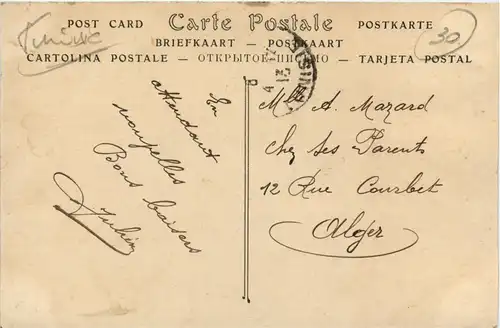 POST CARD Carte Postale POSTKARTE
BRIEFKAART — POSTKAART
CARTOLINA POSTALE — ОТКРЫТОЕ ПИСЬМО — TARJETA POSTAL
30
En
attendant
nouvelles
Bons baisers
Mlle A. Mazard
Chez ses Parents
12 Rue Courbet
Alger